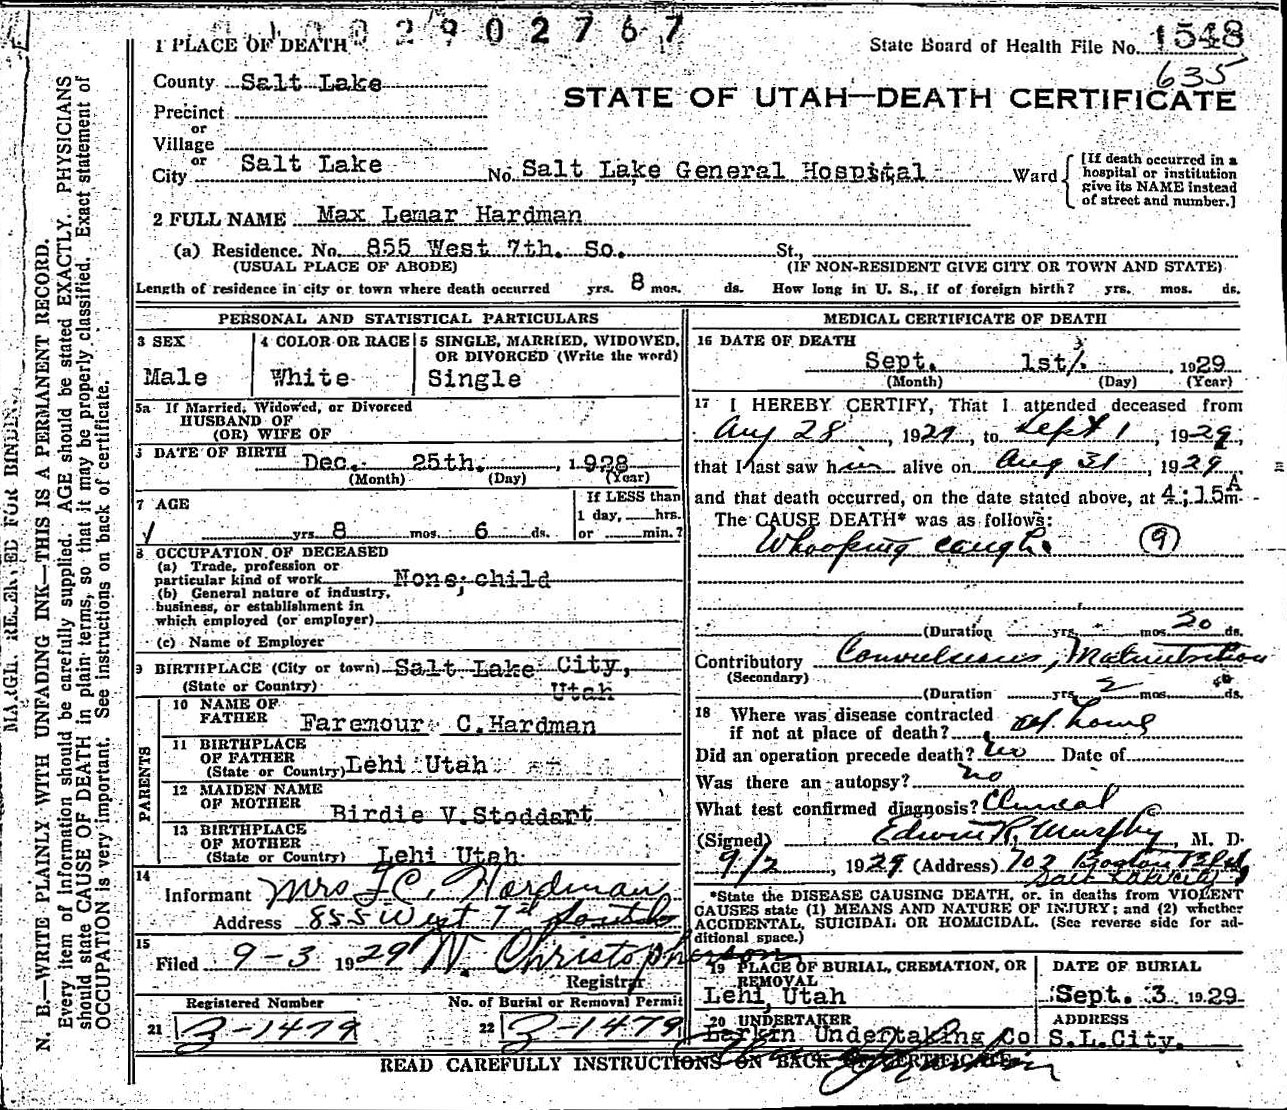 2902767
1 PLACE OF DEATH
State Board of Health File No. 1548
635
County Salt Lake
STATE OF UTAH—DEATH CERTIFICATE
Precinct
or
Village
or
City Salt Lake No. Salt Lake General Hospital Ward
[If death occurred in a
hospital or institution
give its NAME instead
of street and number.]
2 FULL NAME Max Lemar Hardman
(a) Residence. No. 855 West 7th. So. St.,
(USUAL PLACE OF ABODE) (IF NON-RESIDENT GIVE CITY OR TOWN AND STATE)
Length of residence in city or town where death occurred yrs. 8 mos. ds. How long in U. S., if of foreign birth? yrs. mos. ds.
PERSONAL AND STATISTICAL PARTICULARS
3 SEX
Male
4 COLOR OR RACE
White
5 SINGLE, MARRIED, WIDOWED,
OR DIVORCED (Write the word)
Single
5a If Married, Widowed, or Divorced
HUSBAND OF
(OR) WIFE OF
DATE OF BIRTH Dec. 25th. , 1928
(Month) (Day) (Year)
7 AGE
yrs. 8 mos. 6 ds.
If LESS than
1 day, hrs.
or min.?
8 OCCUPATION OF DECEASED
(a) Trade, profession or
particular kind of work None; child
(b) General nature of industry,
business, or establishment in
which employed (or employer)
(c) Name of Employer
9 BIRTHPLACE (City or town) Salt Lake City,
(State or Country) Utah
PARENTS
10 NAME OF
FATHER Faremour C. Hardman
11 BIRTHPLACE
OF FATHER
(State or Country) Lehi Utah
12 MAIDEN NAME
OF MOTHER Birdie V. Stoddart
13 BIRTHPLACE
OF MOTHER
(State or Country) Lehi Utah
14
Informant Mrs F C. Hardman
Address 855 West 7th South
15
Filed 9-3 1929 W. Christopherson
Registrar
Registered Number
21 3-1479
No. of Burial or Removal Permit
22 3-1479
MEDICAL CERTIFICATE OF DEATH
16 DATE OF DEATH
Sept. 1st/. , 1929
(Month) (Day) (Year)
17 I HEREBY CERTIFY, That I attended deceased from
Aug 28 , 1929, to Sept 1 , 1929,
that I last saw him alive on Aug 31 , 1929
and that death occurred, on the date stated above, at 4:15 A m.
The CAUSE DEATH* was as follows:
Whooping cough. (9)
(Duration yrs. mos. 20 ds.
Contributory Convulsions, Malnutrition
(Secondary)
(Duration yrs. 2 mos. ds.
18 Where was disease contracted
if not at place of death? at home
Did an operation precede death? no Date of
Was there an autopsy? no
What test confirmed diagnosis? Clinical
(Signed) Edwin R. Murphy M. D.
9/2 , 1929 (Address) 702 Boston Bldg
Salt Lake City
*State the DISEASE CAUSING DEATH, or, in deaths from VIOLENT
CAUSES state (1) MEANS AND NATURE OF INJURY; and (2) whether
ACCIDENTAL, SUICIDAL OR HOMICIDAL. (See reverse side for ad-
ditional space.)
19 PLACE OF BURIAL, CREMATION, OR
REMOVAL
Lehi, Utah
DATE OF BURIAL
Sept. 3 1929
20 UNDERTAKER
Larkin Undertaking Co
ADDRESS
S.L.City.
READ CAREFULLY INSTRUCTIONS ON BACK OF CERTIFICATE
N. B.—WRITE PLAINLY WITH UNFADING INK—THIS IS A PERMANENT RECORD.
Every item of information should be carefully supplied. AGE should be stated EXACTLY. PHYSICIANS
should state CAUSE OF DEATH in plain terms, so that it may be properly classified. Exact statement of
OCCUPATION is very important. See instructions on back of certificate.
RESERVED FOR BINDING